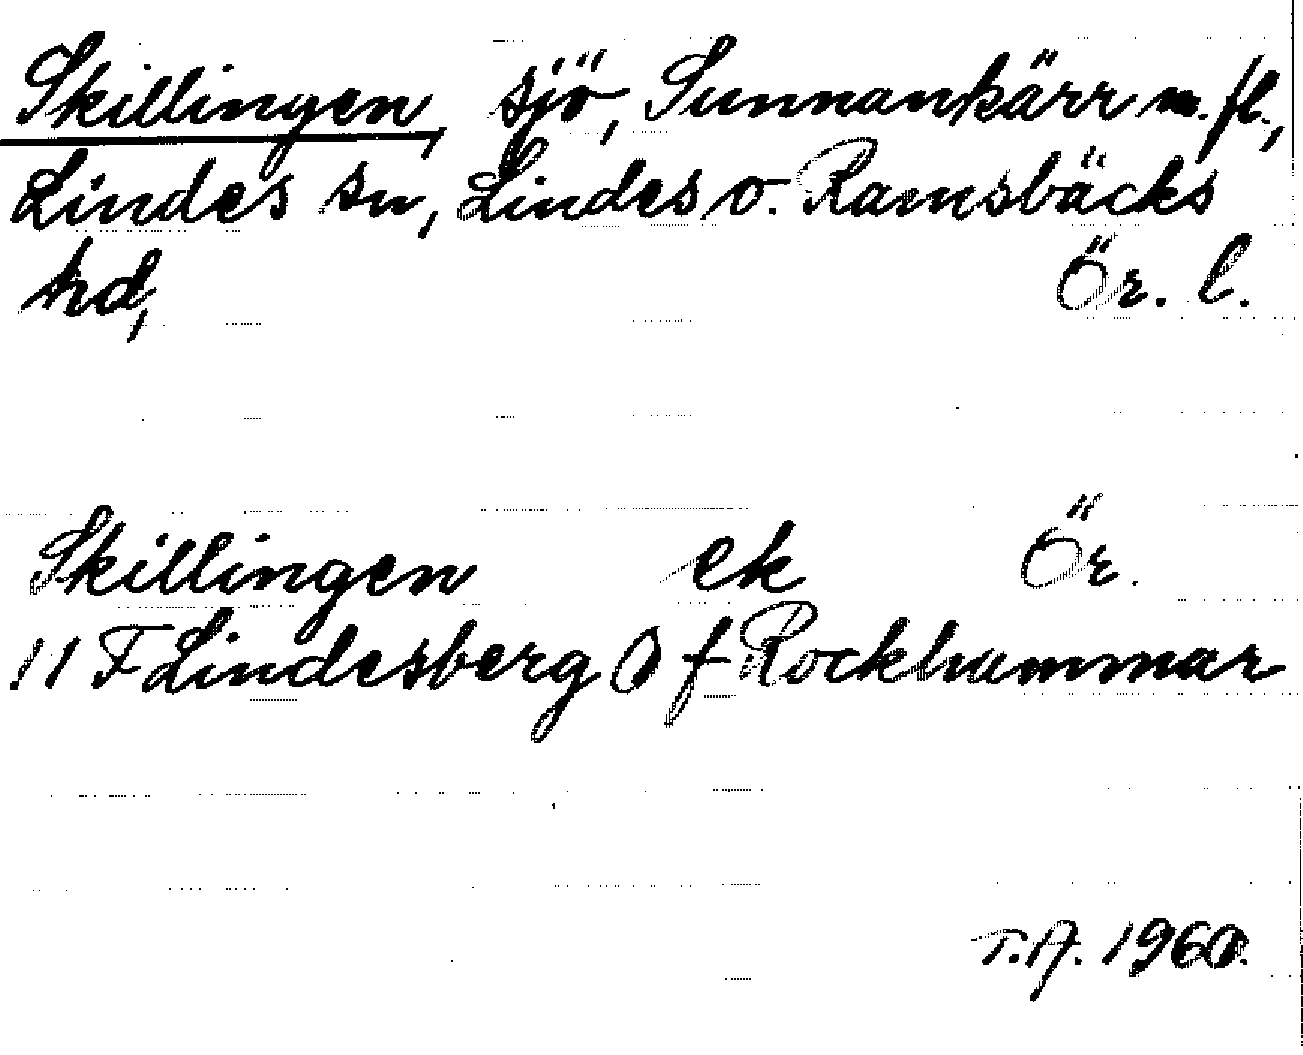 Skillingen, sjö, Sunnankärr m. fl.,
Lindes sn, Lindes o. Ramsbäcks
hd, Ör. l.
Skillingen ek Ör.
11 F Lindesberg O f Rockhammar
T.A. 1960.